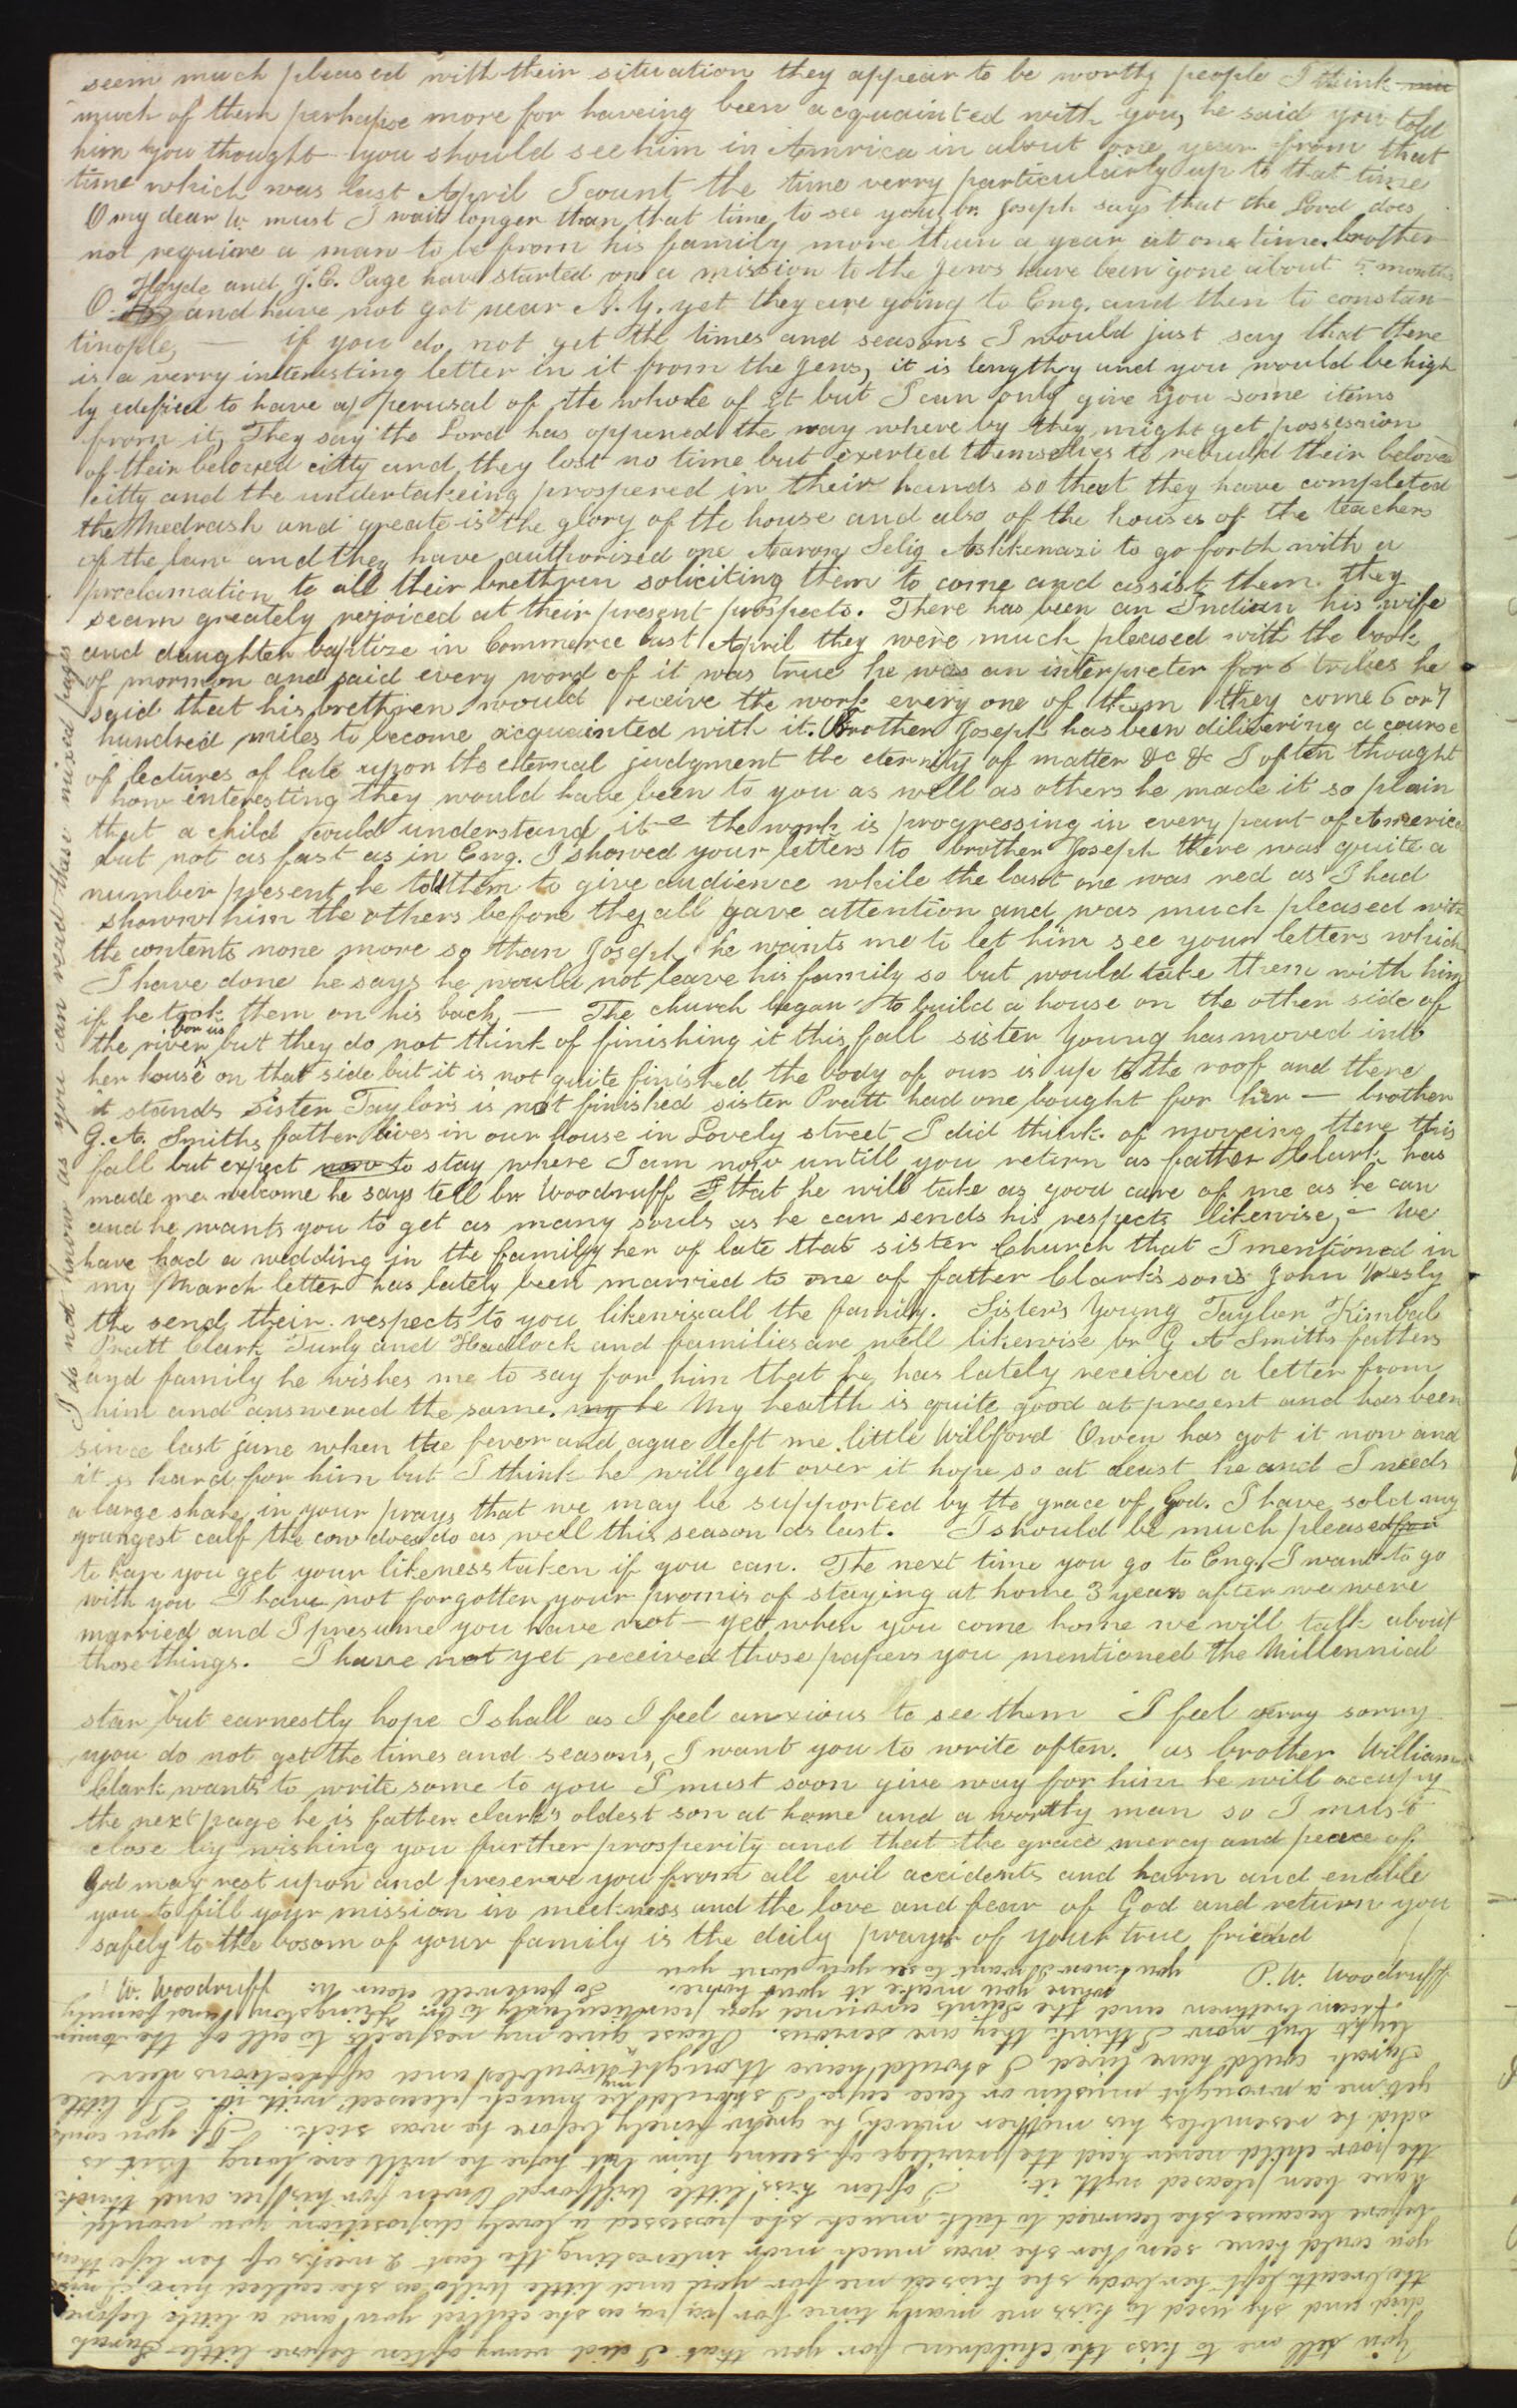 seem much pleased with their situation they appear to be worthy people I think mu
much of them perhapse more for haveing been acquainted with you, he said you told
him you thought you should see him in Amrica in about one year from that
time which was last April I count the time verry particularly up to that time
O my dear W. must I wait longer than that time to see you, br. Joseph says that the Lord does
not requiire a man to be from his family more than a year at one time. brother
O. Hyde and J. E. Page have started on a mission to the Jews have been gone about 5 months
and have not got near N. Y. yet they are going to Eng. and then to constan
tinople, — if you do not get the times and seasons I would just say that there
is a verry interesting letter in it from the Jews, it is lengthy and you would be high
ly edified to have a perusal of the whole of it but I can only give you some items
from it, They say the Lord has oppened the way where by they might get possession
of their beloved citty and they lost no time but exerted themselves to rebuild their beloved
citty and the undertakeing prospered in their hands so that they have completed
the Medrash and greate is the glory of the house and also of the houses of the teachers
of the law and they have authorised one Aaron Selig Ashkenazi to go forth with a
proclamation to all their brethren soliciting them to come and assist them. they
seam greately rejoiced at their present prospects. There has been an Indian his wife
and daughter baptize in Commerce last April they were much pleased with the book
of mormon and said every word of it was true he was an interpreter for 6 tribes he
said that his brethren would receive the work every one of them they come 6 or 7
hundred miles to become acquainted with it. Brother Joseph has been dilivering a course
of lectures of late upon the eternal judgment the eternity of matter &c &c I often thought
how interesting they would have been to you as well as others he made it so plain
that a child could understand it — the work is progressing in every part of America
but not as fast as in Eng. I showed your letters to brother Joseph there was quite a
number present, he told them to give audience while the last one was red as I had
shown him the others before they all gave attention and was much pleased with
the contents none more so than Joseph, he wants me to let him see your letters which
I have done he says he would not leave his family so but would take them with him
if he took them on his back, — The church began to build a house on the other side of
the river for us but they do not think of finishing it this fall sister Young has moved into
her house on that side but it is not quite finished the body of ours is up to the roof and there
it stands sister Taylor's is not finished sister Pratt had one bought for her — brother
G. A. Smiths father lives in our house in Lovely street I did think of moveing there this
fall but expect now to stay where I am now untill you return as father Clark has
made me welcome he says tell br Woodruff that he will take as good care of me as he can
and he wants you to get as many souls as he can sends his respects likewise, — We
have had a wedding in the family her of late that sister Church that I mentioned in
my March letter has lately been married to one of father Clark's sons John Wesly
the send their respects to you likewise all the family. Sisters Young Taylor Kimbal
Pratt Clark Turly and Hadlock and families are well likewise br G A Smiths fathers
and family he wishes me to say for him that he has lately received a letter from
him and answered the same. my he My health is quite good at present and has been
since last june when the fever and ague left me. little Willford Owen has got it now and
it is hard for him but I think he will get over it hope so at least he and I needs
a large share in your prays that we may be supported by the grace of God. I have sold my
youngest calf the cow does do as well this season as last. I should be much pleased for
to have you get your likeness taken if you can. The next time you go to Eng. I want to go
with you I have not forgotten your promis of staying at home 3 years after we were
married and I presume you have not — yet when you come home we will talk about
those things. I have not yet received those papers you mentioned the Millennial
star but earnestly hope I shall as I feel anxious to see them I feel verry sorry
you do not get the times and seasons, I want you to write often. as brother William
Clark wants to write some to you I must soon give way for him he will occupy
the next page he is father clark's oldest son at home and a worthy man so I must
close by wishing you further prosperity and that the grace mercy and peace of
God may rest upon and preserve you from all evil accidents and harm and enable
you to fill your mission in meekness and the love and fear of God and return you
safely to the bosom of your family is the daily prayr of your true friend
P. W. Woodruff
W. Woodruff
I do not know as you can read these mixed pages
You tell me to kiss the children for you that I did verry often before little Sarah
died and she used to kiss me many time for pa, pa, as she called you and a little before
the breath left her body she kissed me for you and little Willo as she called him I wish
you could have seen her she was much more interesting the last 2 weeks of her life than
before because she learned to talk much she possessed a lovely disposition you would
have been pleased with it. I often kiss little Willford Owen for his pa and think
the poor child never had the privilege of seeing him but hope he will ere long but is
said he resembles his mother much, he grew finely before he was sick. If you could
get me a wrought muslin or lace cape I should be much pleased with it. If little
Sarah could have lived I should have thought my troubles and afflictions were
light but now I think they are serious. Please give my respects to all of the Amer
ican brethren and the saints around you particularly to br. Kingston and family
where you make it your home. So farewell dear W.
you know I want to see you dont you